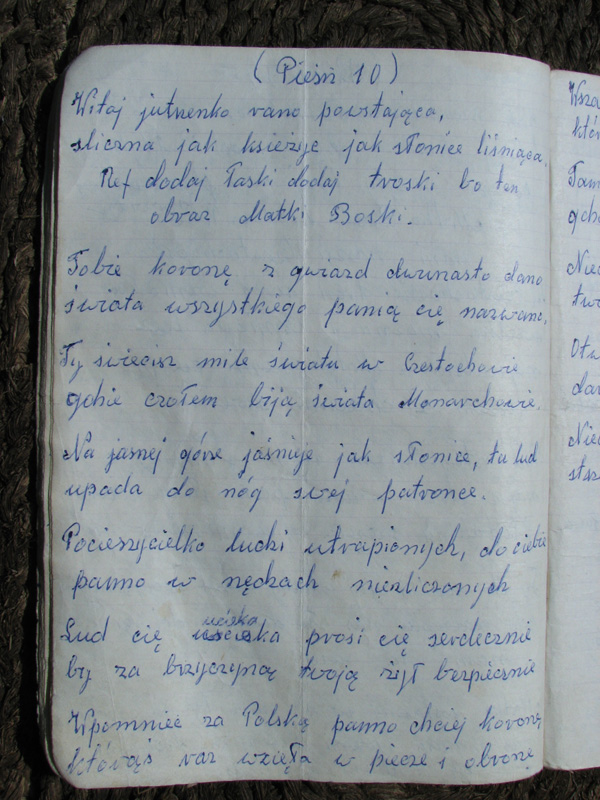 ( Pieśń 10 )
Witaj jutrzenko rano powstająca,
śliczna jak księżyc jak słonice liśniąca.
Ref dodaj łaski dodaj troski bo ten
obraz Matki Boski.
Tobie koronę z gwiazd dwunasto dano
świata wszystkiego panią cię nazwano,
Ty świecisz mile światu w Częstochowie
gdzie czołem biją świata Monarchowie.
Na jasnej górze jaśnieje jak słonice, tu lud
upada do nóg swej patronce.
Pocieszycielko ludzi utrapionych, do ciebie
panno w nędzach niezliczonych
ucieka
Lud cię prosi cię serdecznie
by za przyczyną twoją żył bezpiecznie
Wpomniec za Polską panno chciej koronę
którąś raz wzięła w piecze i obronę
Wsza
któr
Tam
gdzi
Niec
two
Otw
dar
Niec